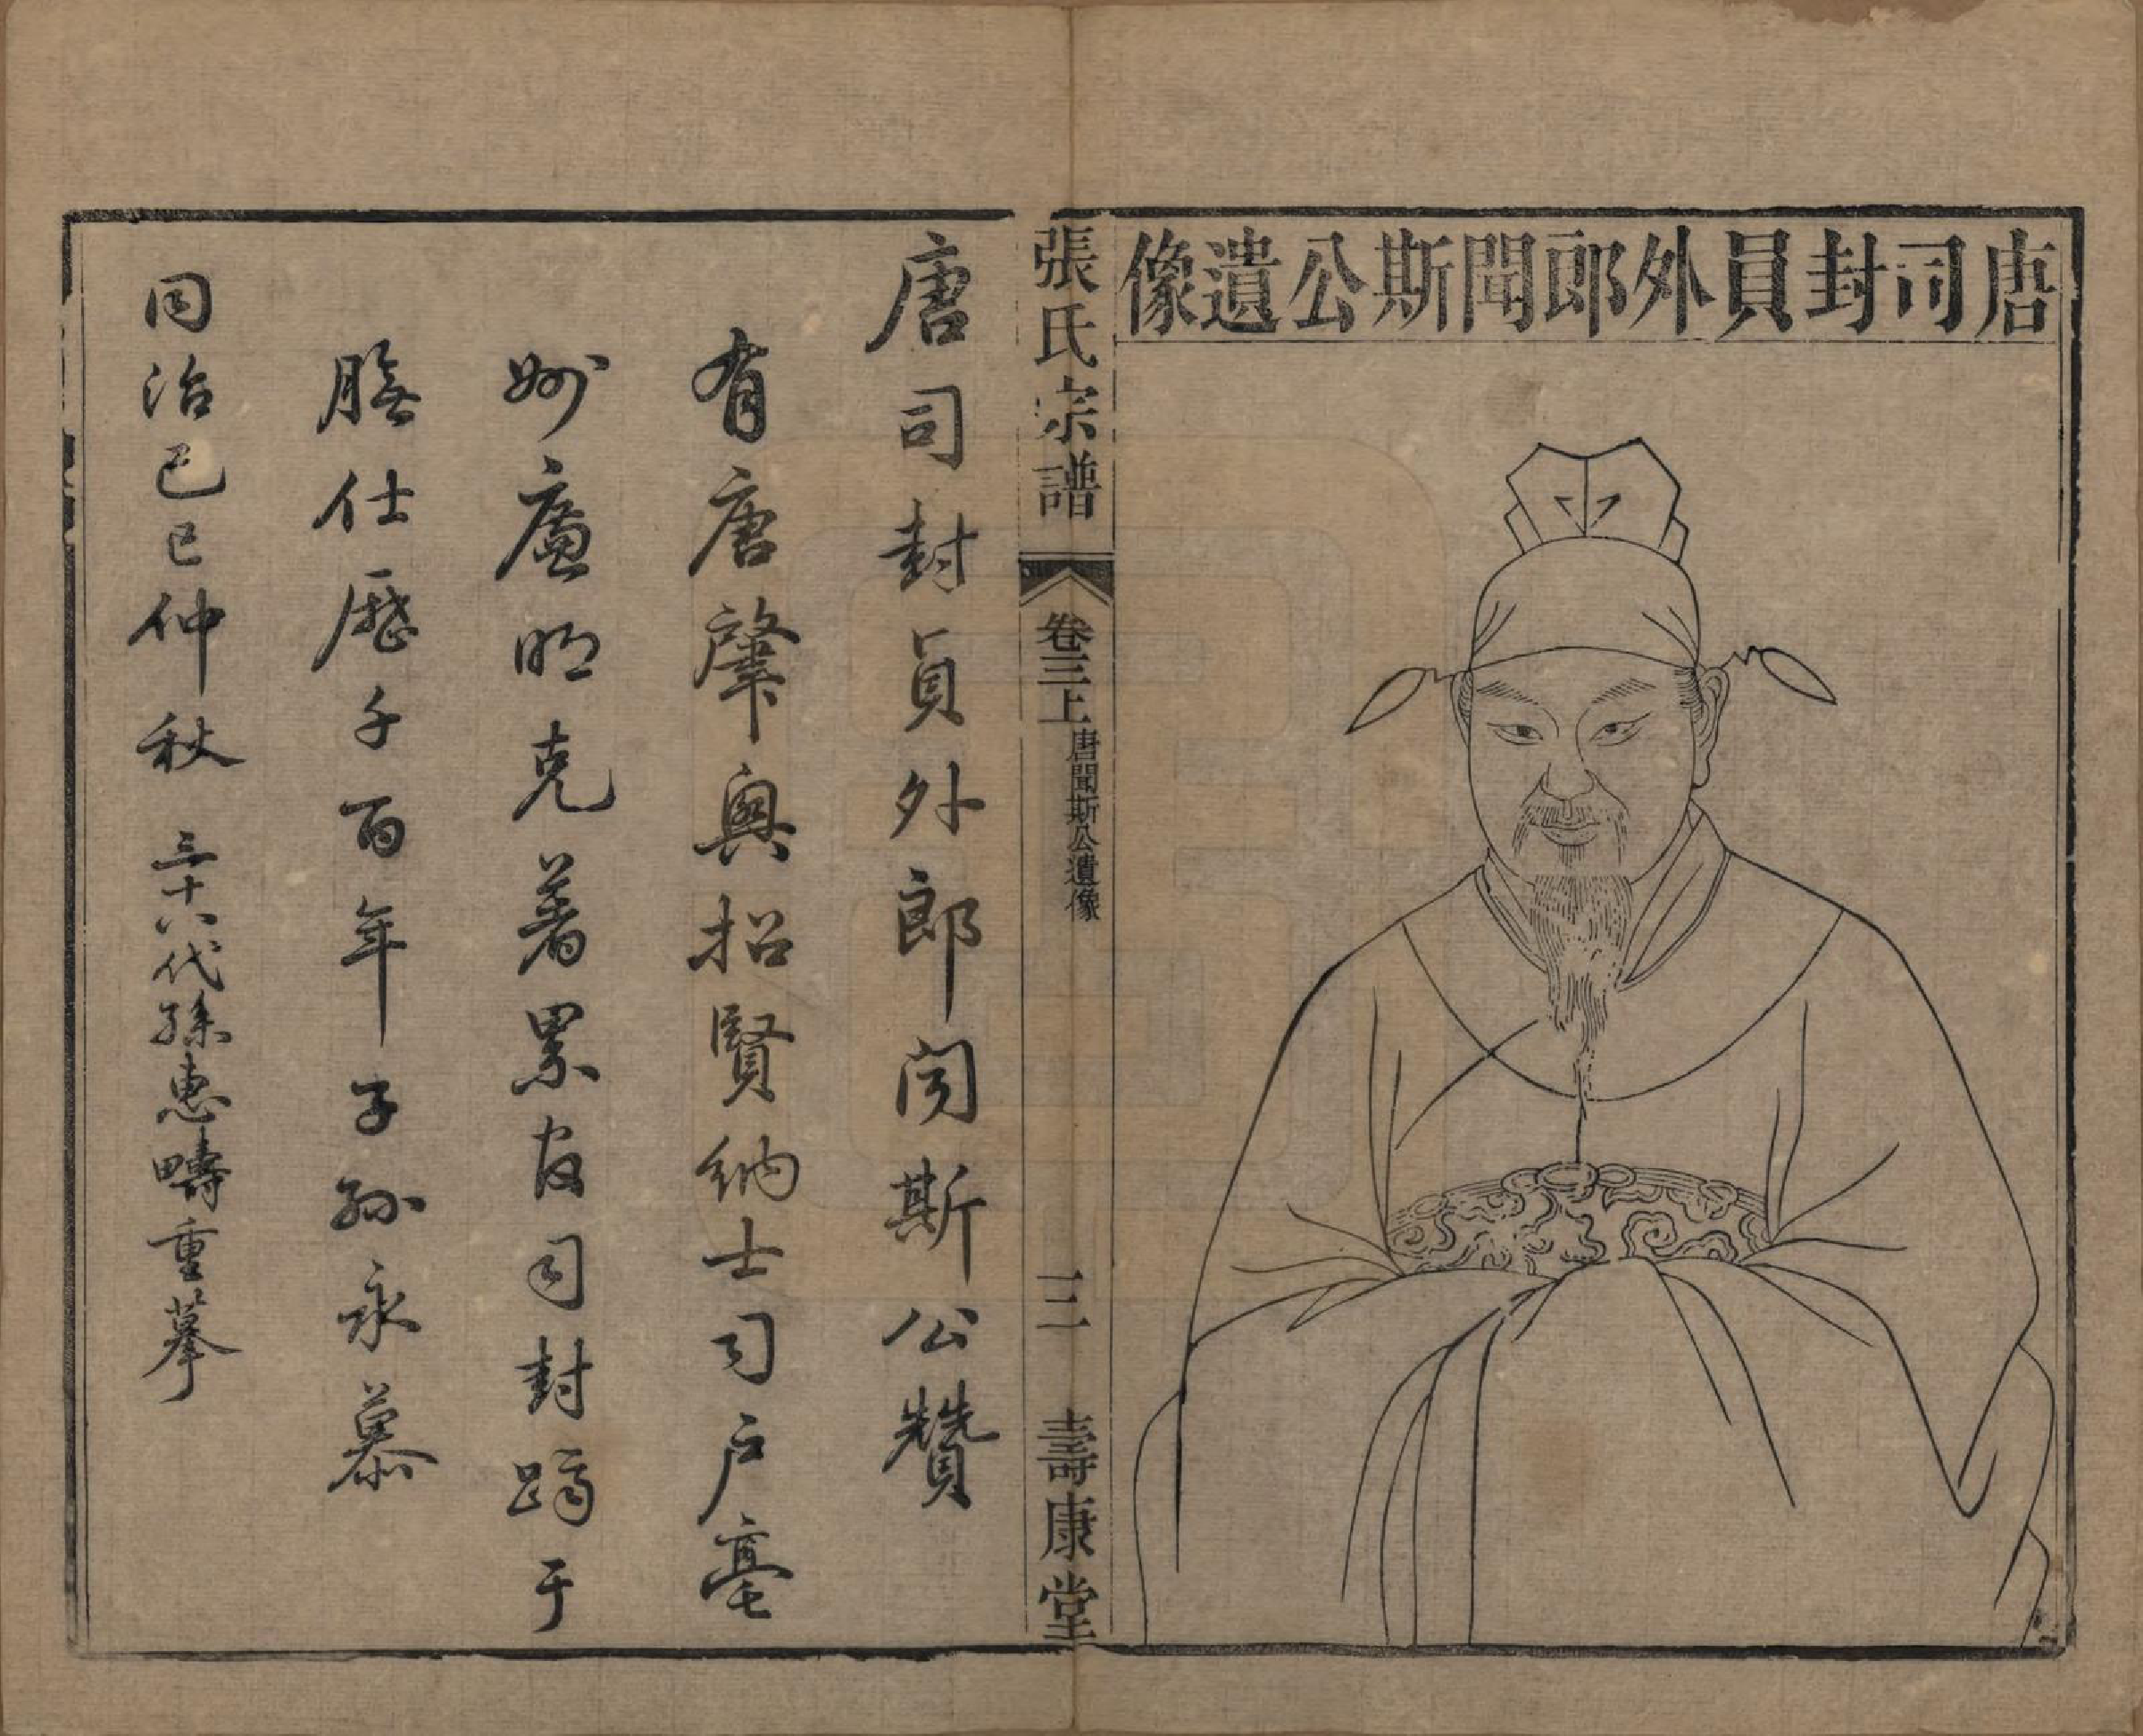 唐司封員外郎聞斯公遺像
張氏宗譜
卷三上
唐聞斯公遺像
三
壽康堂
唐司封員外郎闻斯公贊
有唐肇興招賢納士司戶亳
州廉明克著累官司封蹐于
膴仕歷千百年子孫永慕
同治己巳仲秋
三十八代孫惠疇重摹